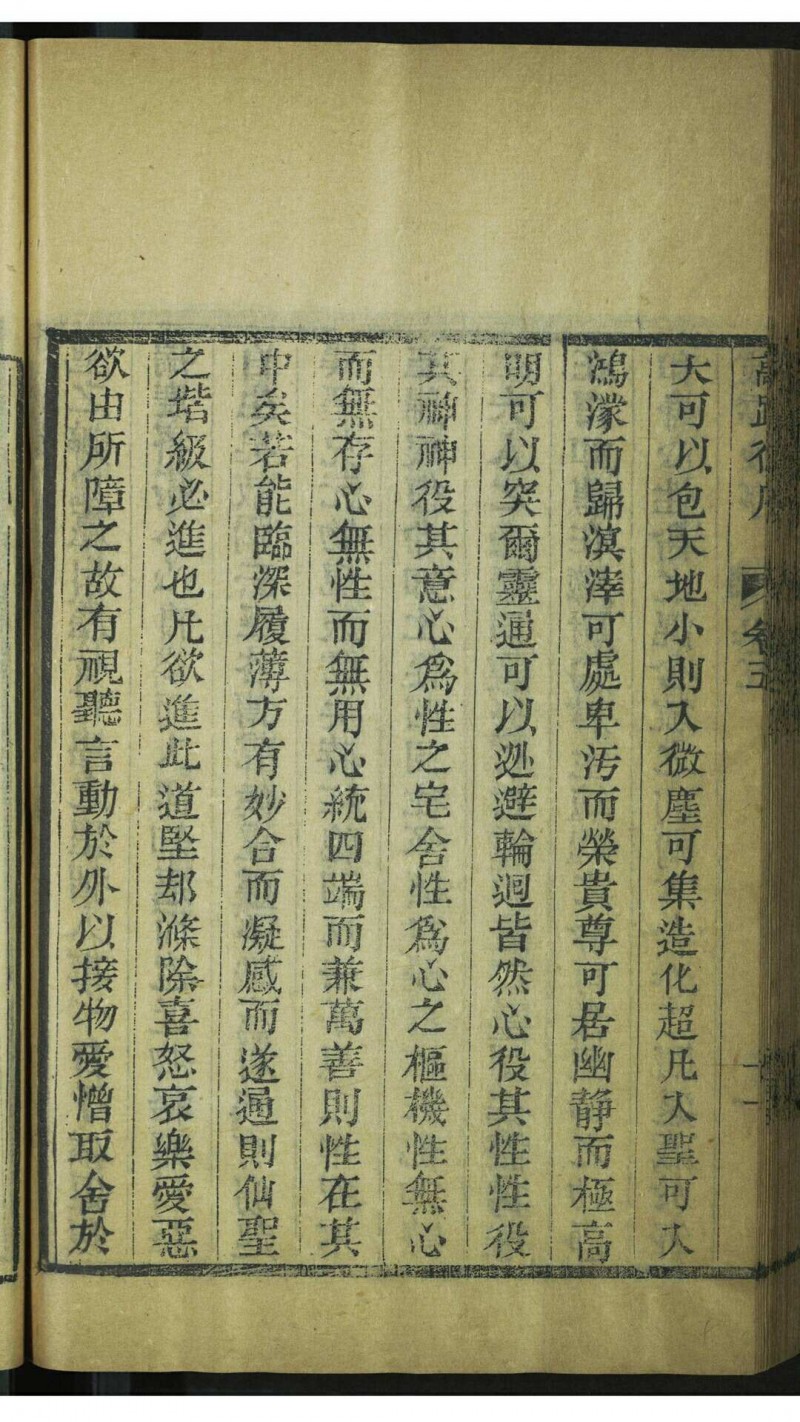 卷五
大可以包天地小則入微塵可集造化超凡入聖可入
鴻濛而歸溟涬可處卑污而榮貴尊可居幽靜而極高
明可以突爾靈通可以逃避輪迴皆然心役其性性役
其神神役其意心爲性之宅舍性爲心之樞機性無心
而無存心無性而無用心統四端而兼萬善則性在其
中矣若能臨深履薄方有妙合而凝感而遂通則仙聖
之堦級必進也凡欲進此道堅却滌除喜怒哀樂愛惡
欲由所障之故有視聽言動於外以接物愛憎取舍於